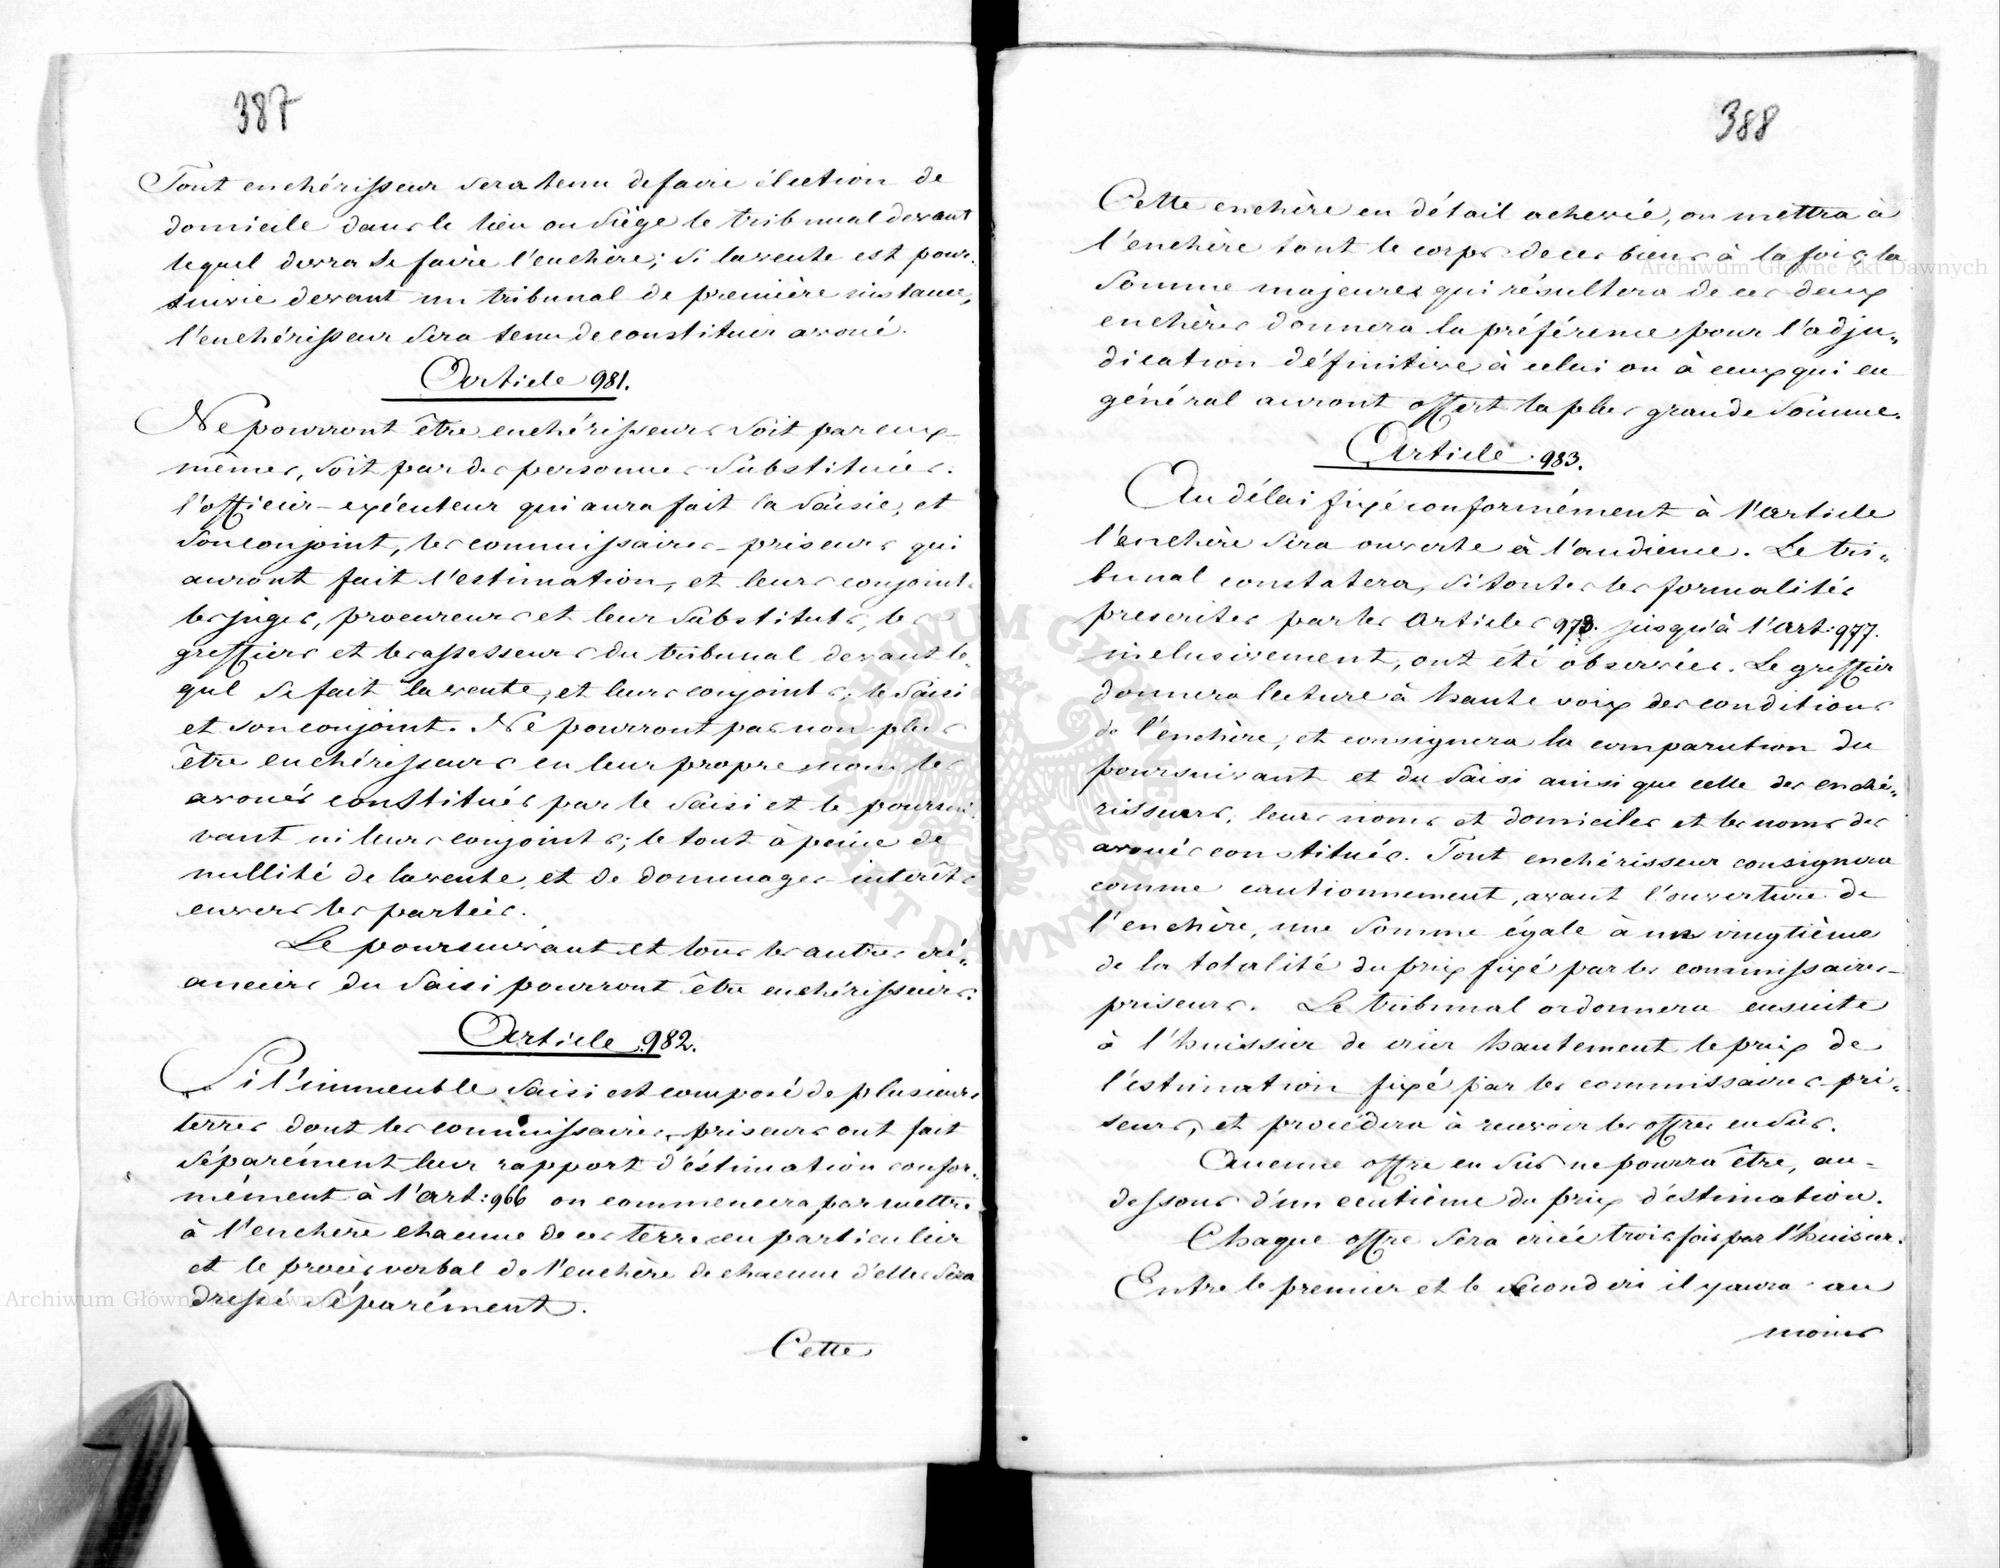 387
Tout enchérisseur sera tenu de faire élection de
domicile dans le lieu ou siège le tribunal devant
lequel devra se faire l'enchère; si la vente est pour-
suivie devant un tribunal de première instance,
l'enchérisseur sera tenu de constituer avoué.
Article 981.
Ne pourront être enchérisseurs soit par eux-
mêmes, soit par des personnes substituées.
l'officier-exécuteur qui aura fait la saisie, et
son conjoint, les commissaires-priseurs qui
auront fait l'estimation, et leurs conjoints
les juges, procureurs et leur substituts, les
greffiers et les assesseurs du tribunal devant le-
quel se fait la vente, et leurs conjoints; le saisi
et son conjoint. Ne pourront pas non plus
être enchérisseurs en leur propre nom les
avoués constitués par le saisi et le poursui-
vant ni leurs conjoints; le tout à peine de
nullité de la vente, et de dommages-intérêts
envers les parties.
Le poursuivant et tous les autres cré-
anciers du saisi pourront être enchérisseurs.
Article 982.
Si l'immeuble saisi est composé de plusieurs
terres dont les commissaires-priseurs ont fait
séparément leur rapport d'éstimation confor-
mément à l'art: 966 on commencera par mettre
à l'enchère chacune de ces terres en particulier
et le procès verbal de l'enchère de chacune d'elles sera
dressé séparément.
Cette
388
Cette enchère en détail achevée, on mettra à
l'enchère tout le corps de ces biens à la fois, la
somme majeure qui résultera de ces deux
enchères donnera la préférence pour l'adju-
dication définitive à celui ou à ceux qui en
général auront offert la plus grande somme.
Article 983.
Au délai fixé conformément à l'article
l'enchère sera ouverte à l'audience. Le tri-
bunal constatera, si toutes les formalités
prescrites par les articles 973. jusqu'à l'art: 977.
inclusivement, ont été observées. Le greffier
donnera lecture à haute voix des conditions
de l'enchère, et consignera la comparution du
poursuivant et du saisi ainsi que celle des enché-
risseurs, leurs noms et domiciles et les noms des
avoués constitués. Tout enchérisseur consignera
comme cautionnement, avant l'ouverture de
l'enchère, une somme égale à un vingtième
de la totalité du prix fixé par les commissaires-
priseurs. Le tribunal ordonnera ensuite
à l'huissier de crier hautement le prix de
l'estimation fixé par les commissaires-pri-
seurs, et procédera à recevoir les offres en sus.
Aucune offre en sus ne pourra être, au-
dessous d'un centième du prix d'éstimation.
Chaque offre sera criée trois fois par l'huissier.
Entre le premier et le second cri il y aura au
moins
Archiwum Główne Akt Dawnych
Archiwum Główne Akt Dawnych
ARCHIWUM GŁÓWNE AKT DAWNYCH